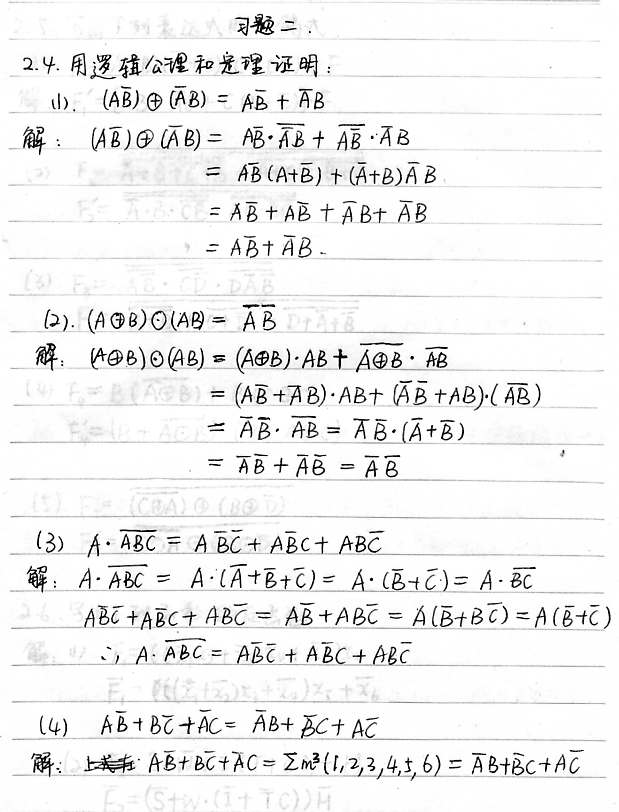 习题二.
2.4. 用逻辑公理和定理证明:
(1). (AB̅)⊕(A̅B) = AB̅ + A̅B
解: (AB̅)⊕(A̅B) = AB̅·\overline{A̅B} + \overline{AB̅}·A̅B
= AB̅(A+B̅) + (A̅+B)A̅B
= AB̅ + AB̅ + A̅B + A̅B
= AB̅ + A̅B.
(2). (A⊕B)⊙(AB) = A̅B̅
解: (A⊕B)⊙(AB) = (A⊕B)·AB + \overline{A⊕B}·\overline{AB}
= (AB̅+A̅B)·AB + (A̅B̅+AB)·(\overline{AB})
= A̅B̅·\overline{AB} = A̅B̅·(A̅+B̅)
= A̅B̅ + A̅B̅ = A̅B̅
(3) A·\overline{ABC} = AB̅C̅ + AB̅C + ABC̅
解: A·\overline{ABC} = A·(A̅+B̅+C̅) = A·(B̅+C̅) = A·\overline{BC}
AB̅C̅ + AB̅C + ABC̅ = AB̅ + ABC̅ = A(B̅+BC̅) = A(B̅+C̅)
∴, A·\overline{ABC} = AB̅C̅ + AB̅C + ABC̅
(4) AB̅ + BC̅ + A̅C = A̅B + B̅C + AC̅
解: AB̅+BC̅+A̅C = Σm³(1,2,3,4,5,6) = A̅B+B̅C+AC̅